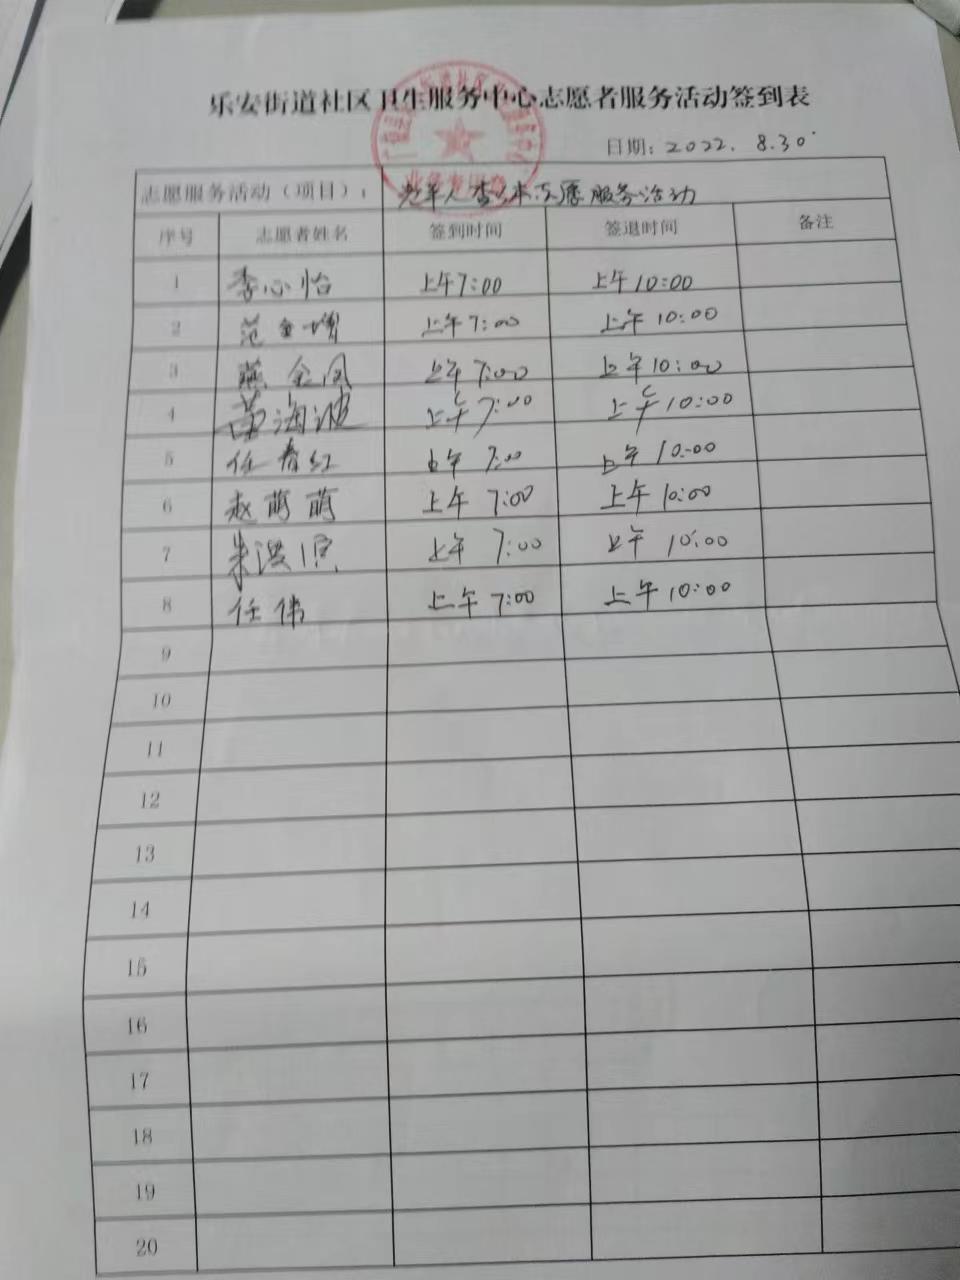 乐安街道社区卫生服务中心志愿者服务活动签到表
日期：2022. 8.30
志愿服务活动（项目）： 老年人查体志愿服务活动
序号 志愿者姓名 签到时间 签退时间 备注
1 李心怡 上午7:00 上午10:00
2 范金增 上午7:00 上午10:00
3 燕金凤 上午7:00 上午10:00
4 苗海波 上午7:00 上午10:00
5 任春红 上午7:00 上午10:00
6 赵萌萌 上午7:00 上午10:00
7 朱洪 上午7:00 上午10:00
8 任伟 上午7:00 上午10:00
9
10
11
12
13
14
15
16
17
18
19
20